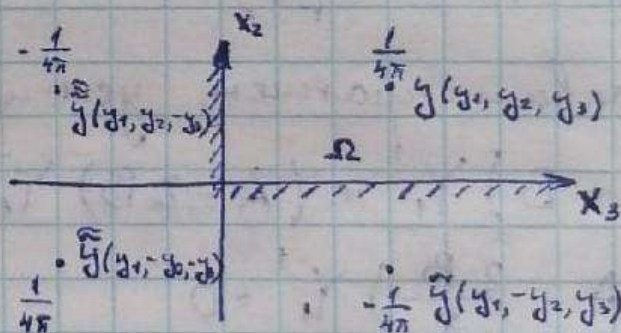 x₂
-1/4π
ỹ̃̃(y₁, y₂, -y₃)
1/4π
y(y₁, y₂, y₃)
Ω
x₃
ỹ̃(y₁, -y₂, -y₃)
1/4π
-1/4π ỹ(y₁, -y₂, y₃)